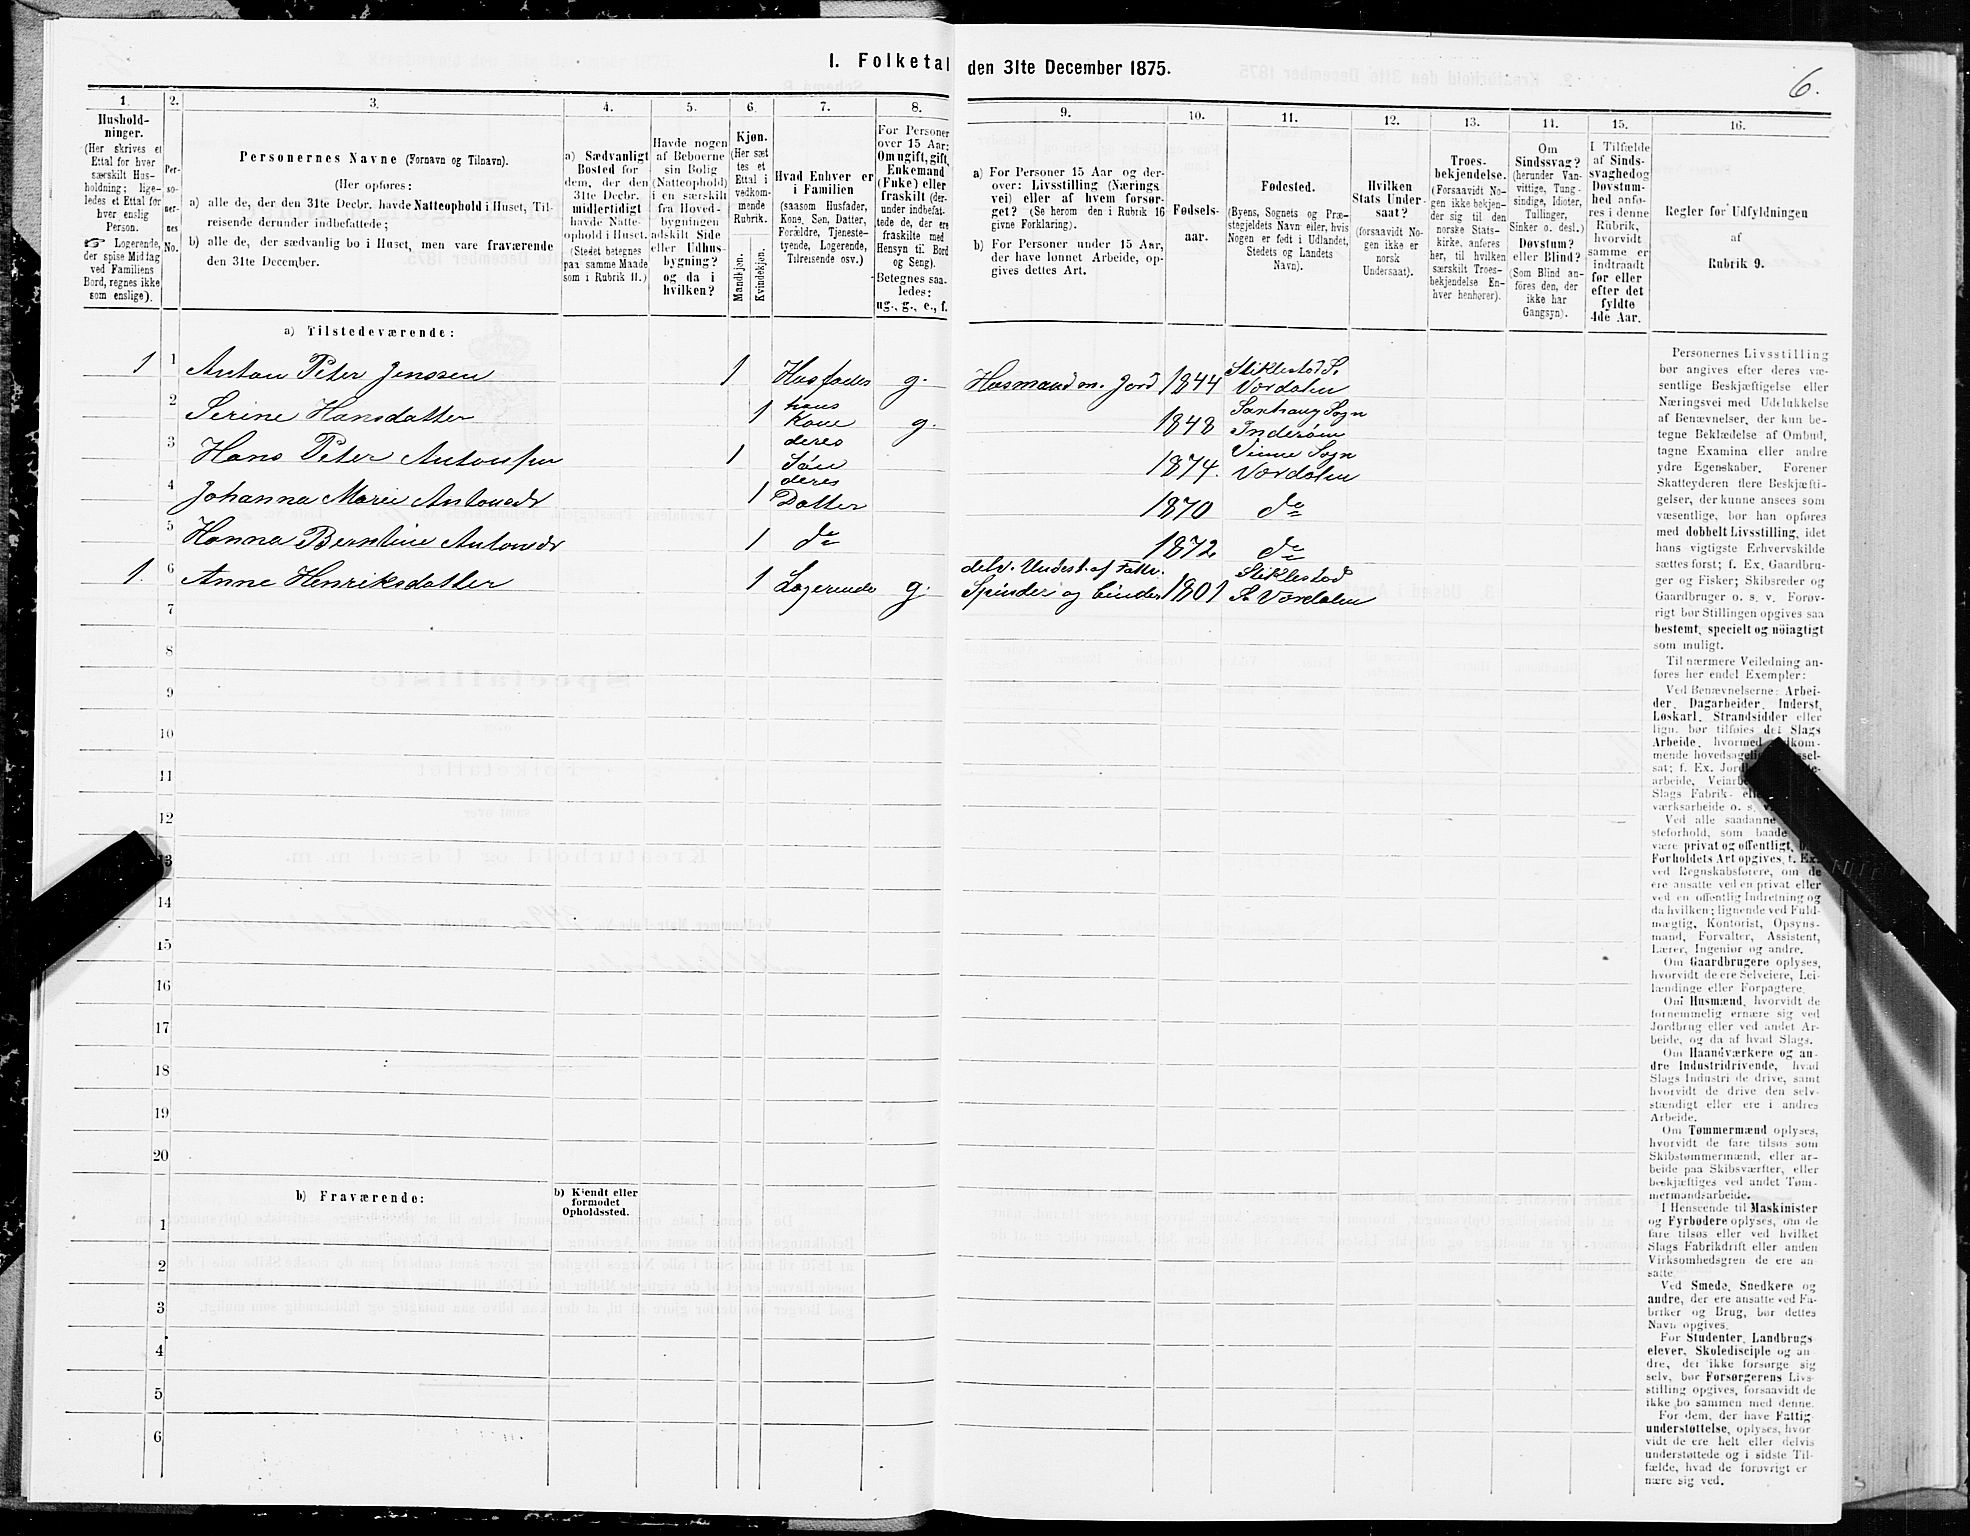 I. Folketal den 31te December 1875.
6.
1.
Hushold-
ninger.
(Her skrives et
Ettal for hver
særskilt Hus-
holdning; lige-
ledes et Ettal for
hver enslig
Person.
☞ Logerende,
der spise Middag
ved Familiens
Bord, regnes ikke
som enslige).
2.
Per-
so-
ner-
nes
No.
3.
Personernes Navne (Fornavn og Tilnavn).
(Her opføres:
a) alle de, der den 31te Decbr. havde Natteophold i Huset, Til-
reisende derunder indbefattede;
b) alle de, der sædvanlig bo i Huset, men vare fraværende
den 31te December.
4.
a) Sædvanligt
Bosted for
dem, der den
31te Decbr.
midlertidigt
havde Natte-
ophold i Huset.
(Stedet betegnes
paa samme Maade
som i Rubrik 11.)
5.
Havde nogen
af Beboerne
sin Bolig
(Natteophold)
i en særskilt
fra Hoved-
bygningen
adskilt Side
eller Udhus-
bygning?
og da i
hvilken?
6.
Kjøn.
(Her sæt
tes et
Ettal i
vedkom-
mende
Rubrik.
Mandkjøn.
Kvindekjøn.
7.
Hvad Enhver er
i Familien
(saasom Husfader,
Kone, Søn, Datter,
Forældre, Tjeneste-
tyende, Logerende,
Tilreisende osv.)
8.
For Personer
over 15 Aar:
Om ugift, gift,
Enkemand
(Enke) eller
fraskilt (der-
under indbefat-
tede de, der ere
fraskilte med
Hensyn til Bord
og Seng).
Betegnes saa-
ledes:
ug., g., e., f.
9.
a) For Personer 15 Aar og der-
over: Livsstilling (Nærings
vei) eller af hvem forsør-
get? (Se herom den i Rubrik 16
givne Forklaring).
b) For Personer under 15 Aar,
der have lønnet Arbeide, op-
gives dettes Art.
10.
Fødsels-
aar.
11.
Fødested.
(Byens, Sognets og Præ-
stegjeldets Navn eller, hvis
Nogen er født i Udlandet,
Stedets og Landets
Navn).
12.
Hvilken
Stats Under-
saat?
(forsaavidt No-
gen ikke er
norsk
Undersaat).
13.
Troes-
bekjendelse.
(Forsaavidt No-
gen ikke bekjen-
der sig til den
norske Stats-
kirke, anføres
her, til hvilken
særskilt Troes-
bekjendelse En-
hver henhører).
14.
Om
Sindssvag?
(herunder Van-
vittige, Tung-
sindige, Idioter,
Tullinger,
Sinker o. desl.)
Døvstum?
eller Blind?
(Som Blind an-
føres den, der
ikke har
Gangsyn).
15.
I Tilfælde
af Sinds-
svaghed og
Døvstum-
hed anfø-
res i denne
Rubrik,
hvorvidt
samme er
indtraadt
før eller
efter det
fyldte
4de Aar.
16.
Regler for Udfyldningen
af
Rubrik 9.
a) Tilstedeværende:
1 1 Anton Peter Jenssen 1 Husfader g. Husmand m. Jord 1844 Stiklestad S. Værdalen
2 Serine Hansdatter 1 hans Kone g. 1848 Sakshaug Sogn Inderøen
3 Hans Peter Antonsen 1 deres Søn 1874. Vinne Sogn Værdalen
4 Johanna Marie Antonsdr 1 deres Datter 1870 do
5 Hanna Berntine Antonsdr 1 do 1872 do
1. 6 Anne Henriksdatter 1 Logerende g. delv. Underst. af Fattv. Spinder og binder 1801 Stiklestad S. Værdalen
7
8
9
10
11
12
13
14
15
16
17
18
19
20
b) Fraværende:
b) Kjendt eller
formodet
Opholdssted.
1
2
3
4
5
6
Personernes Livsstilling
bør angives efter deres væ-
sentlige Beskjæftigelse eller
Næringsvei med Udelukkelse
af Benævnelser, der kun be-
tegne Beklædelse af Ombud,
tagne Examina eller andre
ydre Egenskaber. Forener
Skatteyderen flere Beskjæfti-
gelser, der kunne ansees som
væsentlige, bør han opføres
med dobbelt Livsstilling, idet
hans vigtigste Erhvervskilde
sættes først; f. Ex. Gaardbru-
ger og Fisker; Skibsreder og
Gaardbruger o. s. v. Forøv-
rigt bør Stillingen opgives saa
bestemt, specielt og nöiagtigt
som muligt.
Til nærmere Veiledning an-
føres her endel Exempler:
Ved Benævnelserne: Arbei-
der, Dagarbeider, Inderst,
Løskarl, Strandsidder eller
lign. bør tilføies det Slags
Arbeide, hvormed
mende hovedsagelig
sat; f. Ex.
arbeide,
Slags Fabrik-
værksarbeide o. s.
Ved alle saadanne
steforhold, som baade
være privat og offentligt,
Forholdets Art opgives, f. Ex.
ved Regnskabsførere, om de
ere ansatte ved en privat eller
ved en offentlig Indretning og
da hvilken; lignende ved Fuld-
mægtig, Kontorist, Opsyns-
mand, Forvalter, Assistent,
Lærer, Ingeniør og andre.
Om Gaardbrugere oplyses,
hvorvidt de ere Selveiere, Lei-
lændinge eller Forpagtere.
Om Husmænd, hvorvidt de
fornemmelig ernære sig ved
Jordbrug eller ved andet Ar-
beide, og da af hvad Slags.
Om Haandværkere og an-
dre Industridrivende, hvad
Slags Industri de drive, samt
hvorvidt de drive den selv-
stændigt eller ere i andres
Arbeide.
Om Tømmermænd oplyses,
hvorvidt de fare tilsøs som
Skibstømmermænd, eller ar-
beide paa Skibsværfter, eller
beskjæftiges ved andet Tøm-
mermandsarbeide.
I Henseende til Maskinister
og Fyrbødere oplyses, om de
fare tilsøs eller ved hvilket
Slags Fabrikdrift eller anden
Virksomhedsgren de ere an-
satte.
Ved Smede, Snedkere og
andre, der ere ansatte ved Fa-
briker og Brug, bør dettes
Navn opgives.
For Studenter, Landbrugs
elever, Skoledisciple og an
dre, der ikke forsørge sig
selv, bør Forsørgerens Livs-
stilling opgives, forsaavidt de
ikke bo sammen med denne.
For dem, der have Fattig-
understøttelse, oplyses, hvor
vidt de ere helt eller delvis
understøttede og i sidste Til-
fælde, hvad de forøvrigt er
nære sig ved.